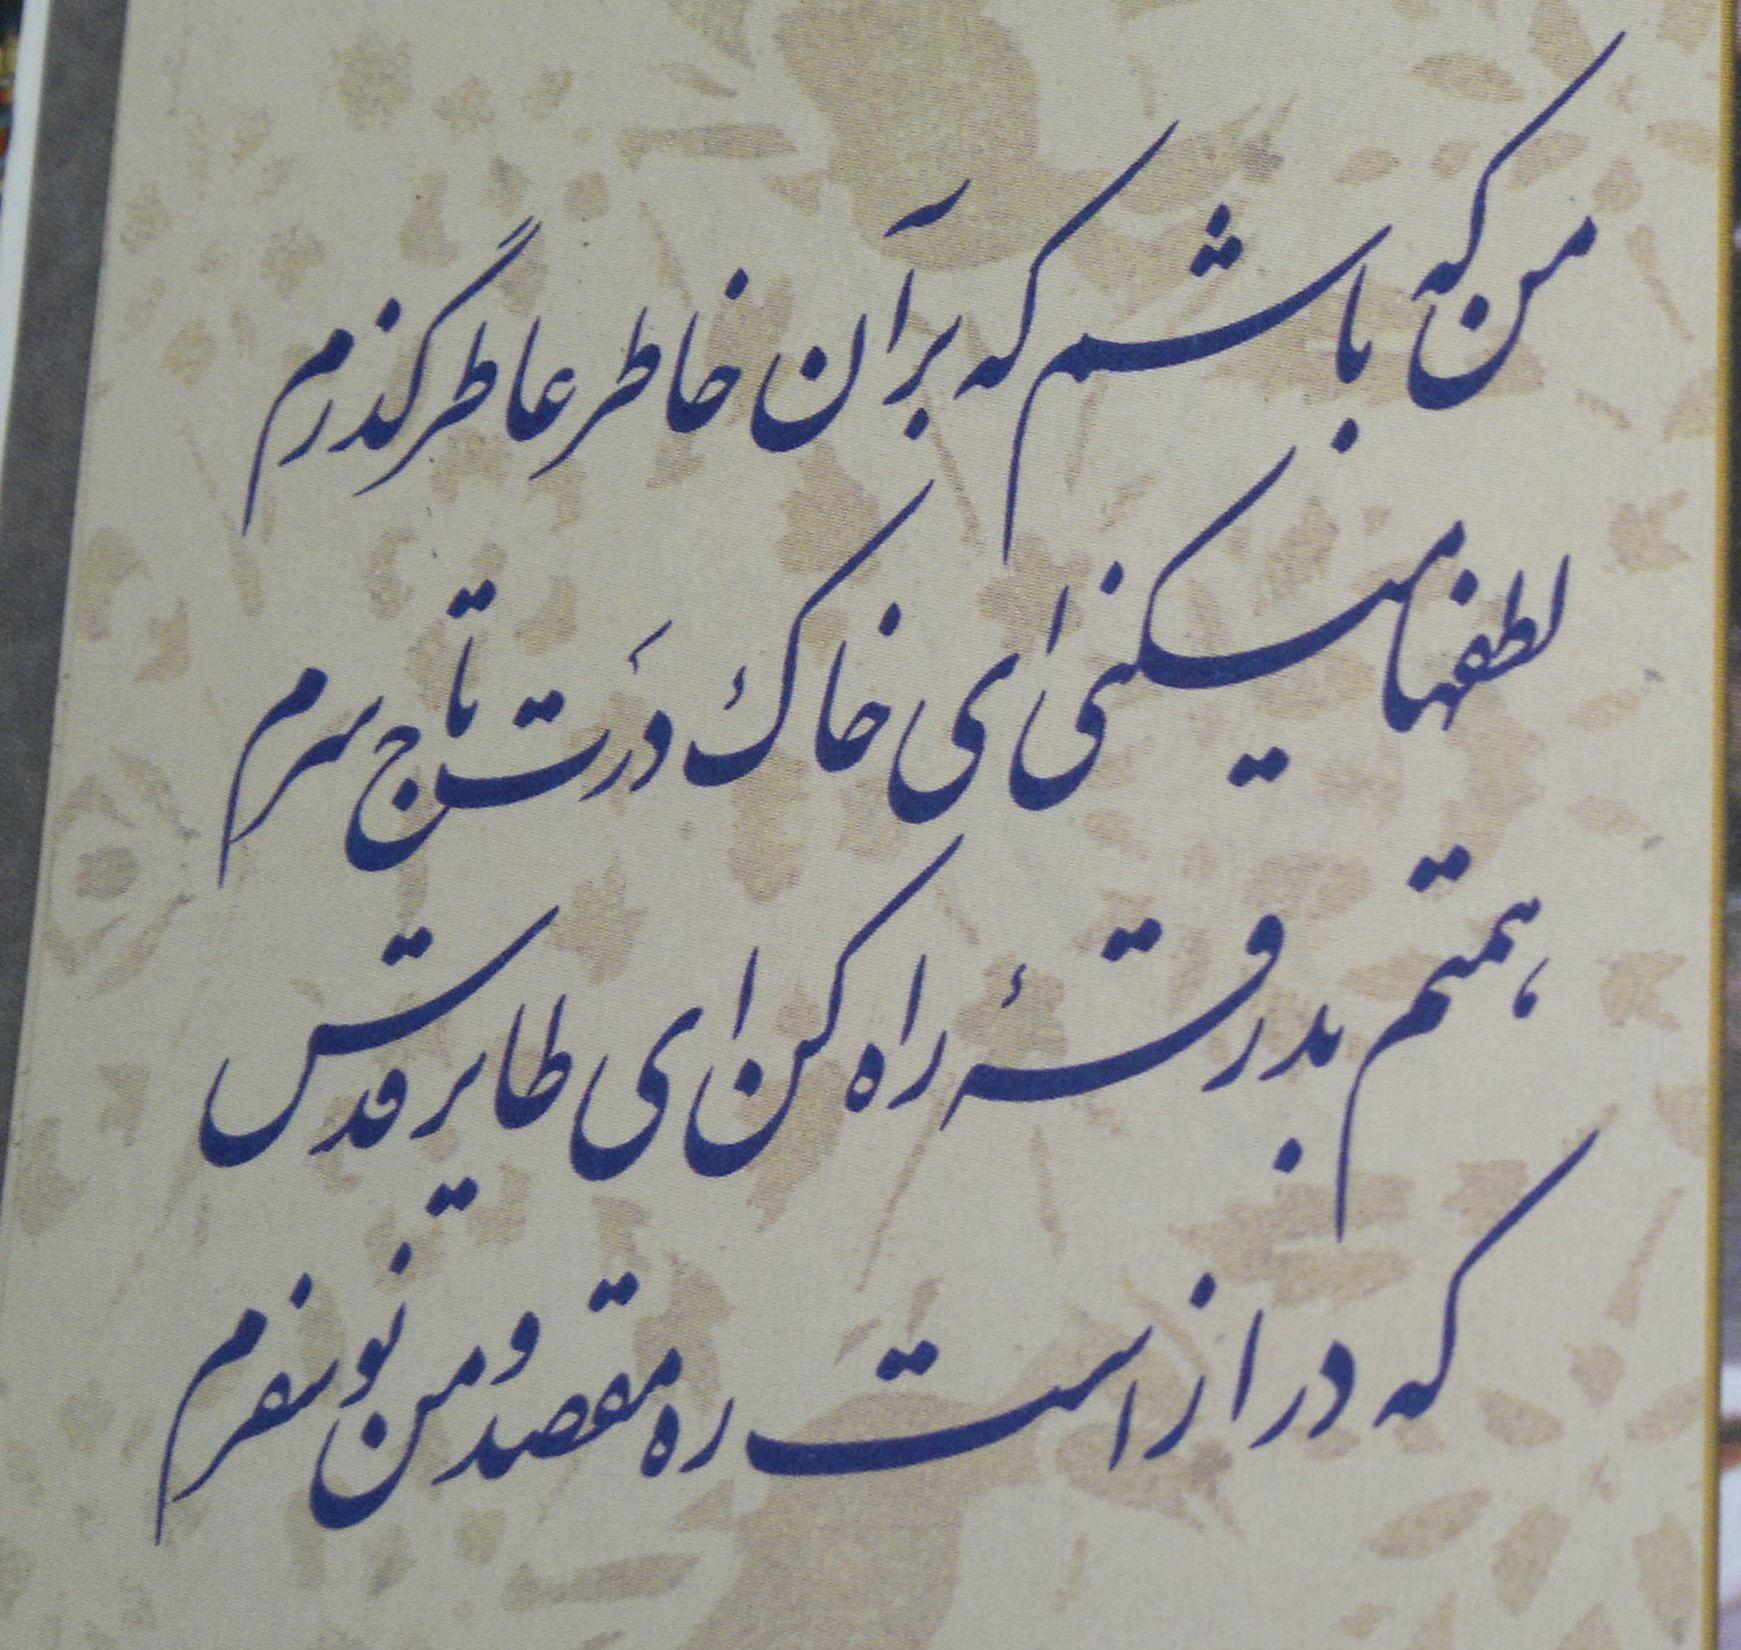 من که باشم که بر آن خاطر عاطر گذرم
لطفها میکنی ای خاکِ دَرَت تاج سرم
همتم بدرقهٔ راه کن ای طایر قدس
که دراز است ره مقصد و من نوسفرم